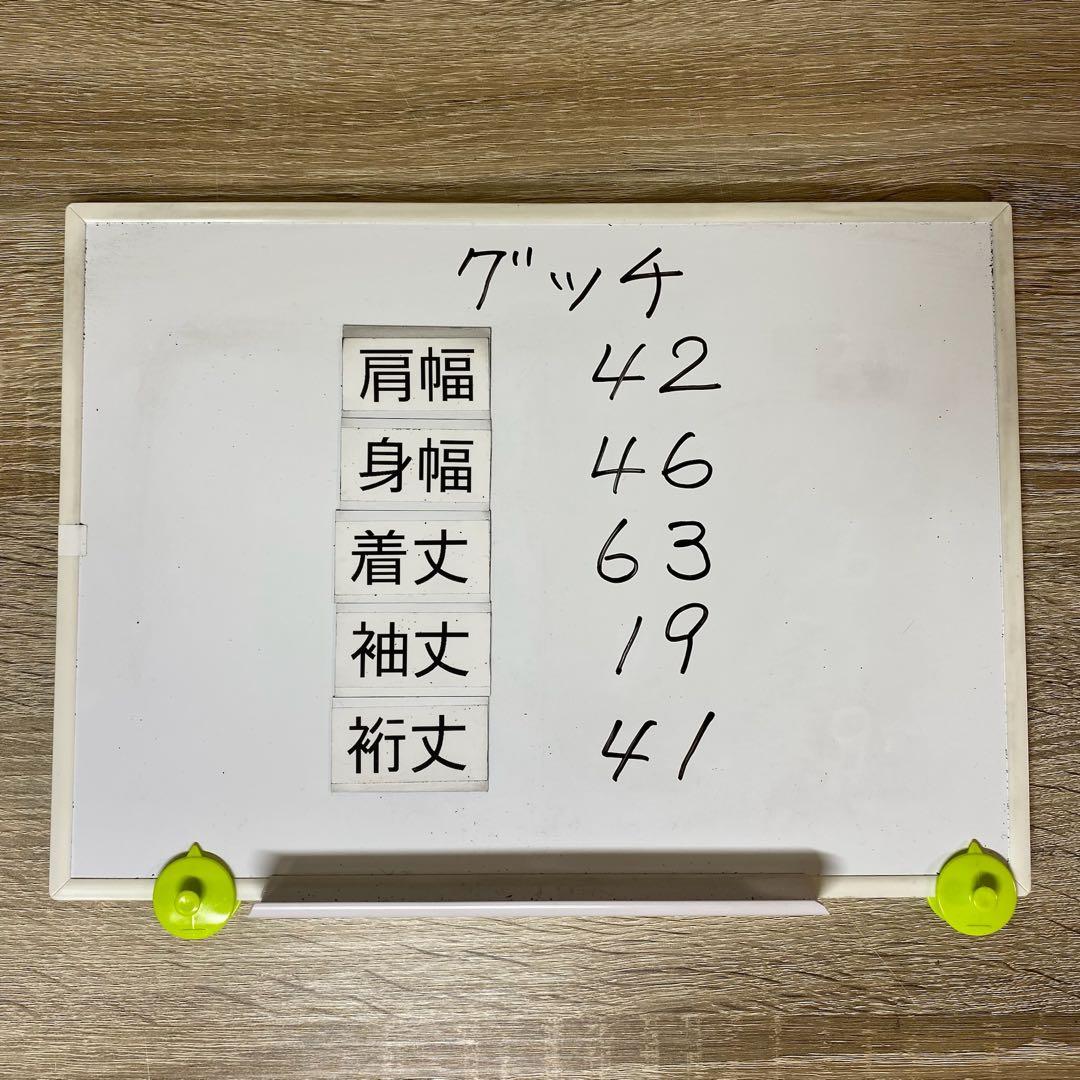 グッチ
肩幅 42
身幅 46
着丈 63
袖丈 19
裄丈 41